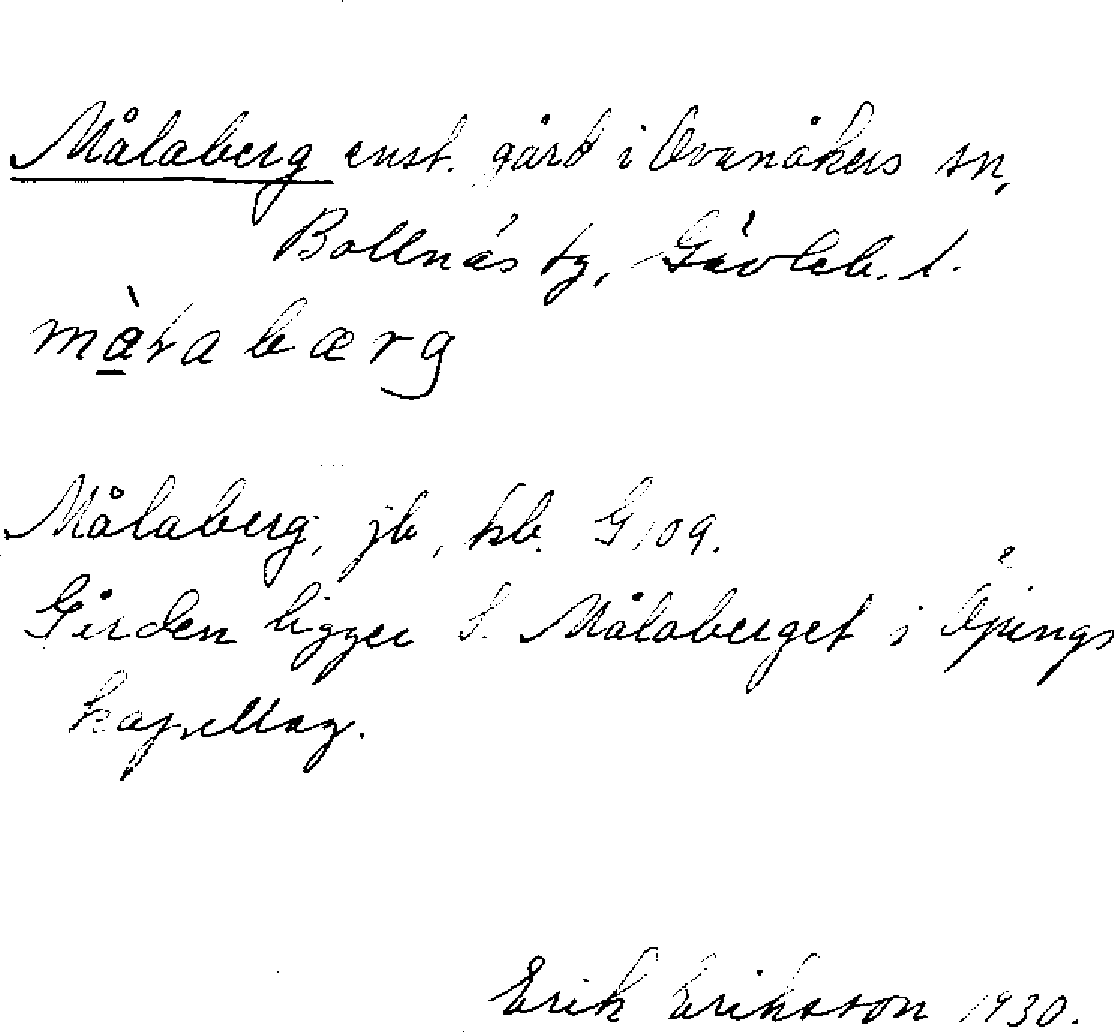 Målaberg enst. gård i Ovanåkers sn,
Bollnäs tg, Gävleb. l.
Målaberg, jb, kb. G 109.
Gården ligger S. Målaberget i Öjungs
kapellag.
Erik Eriksson 1930.